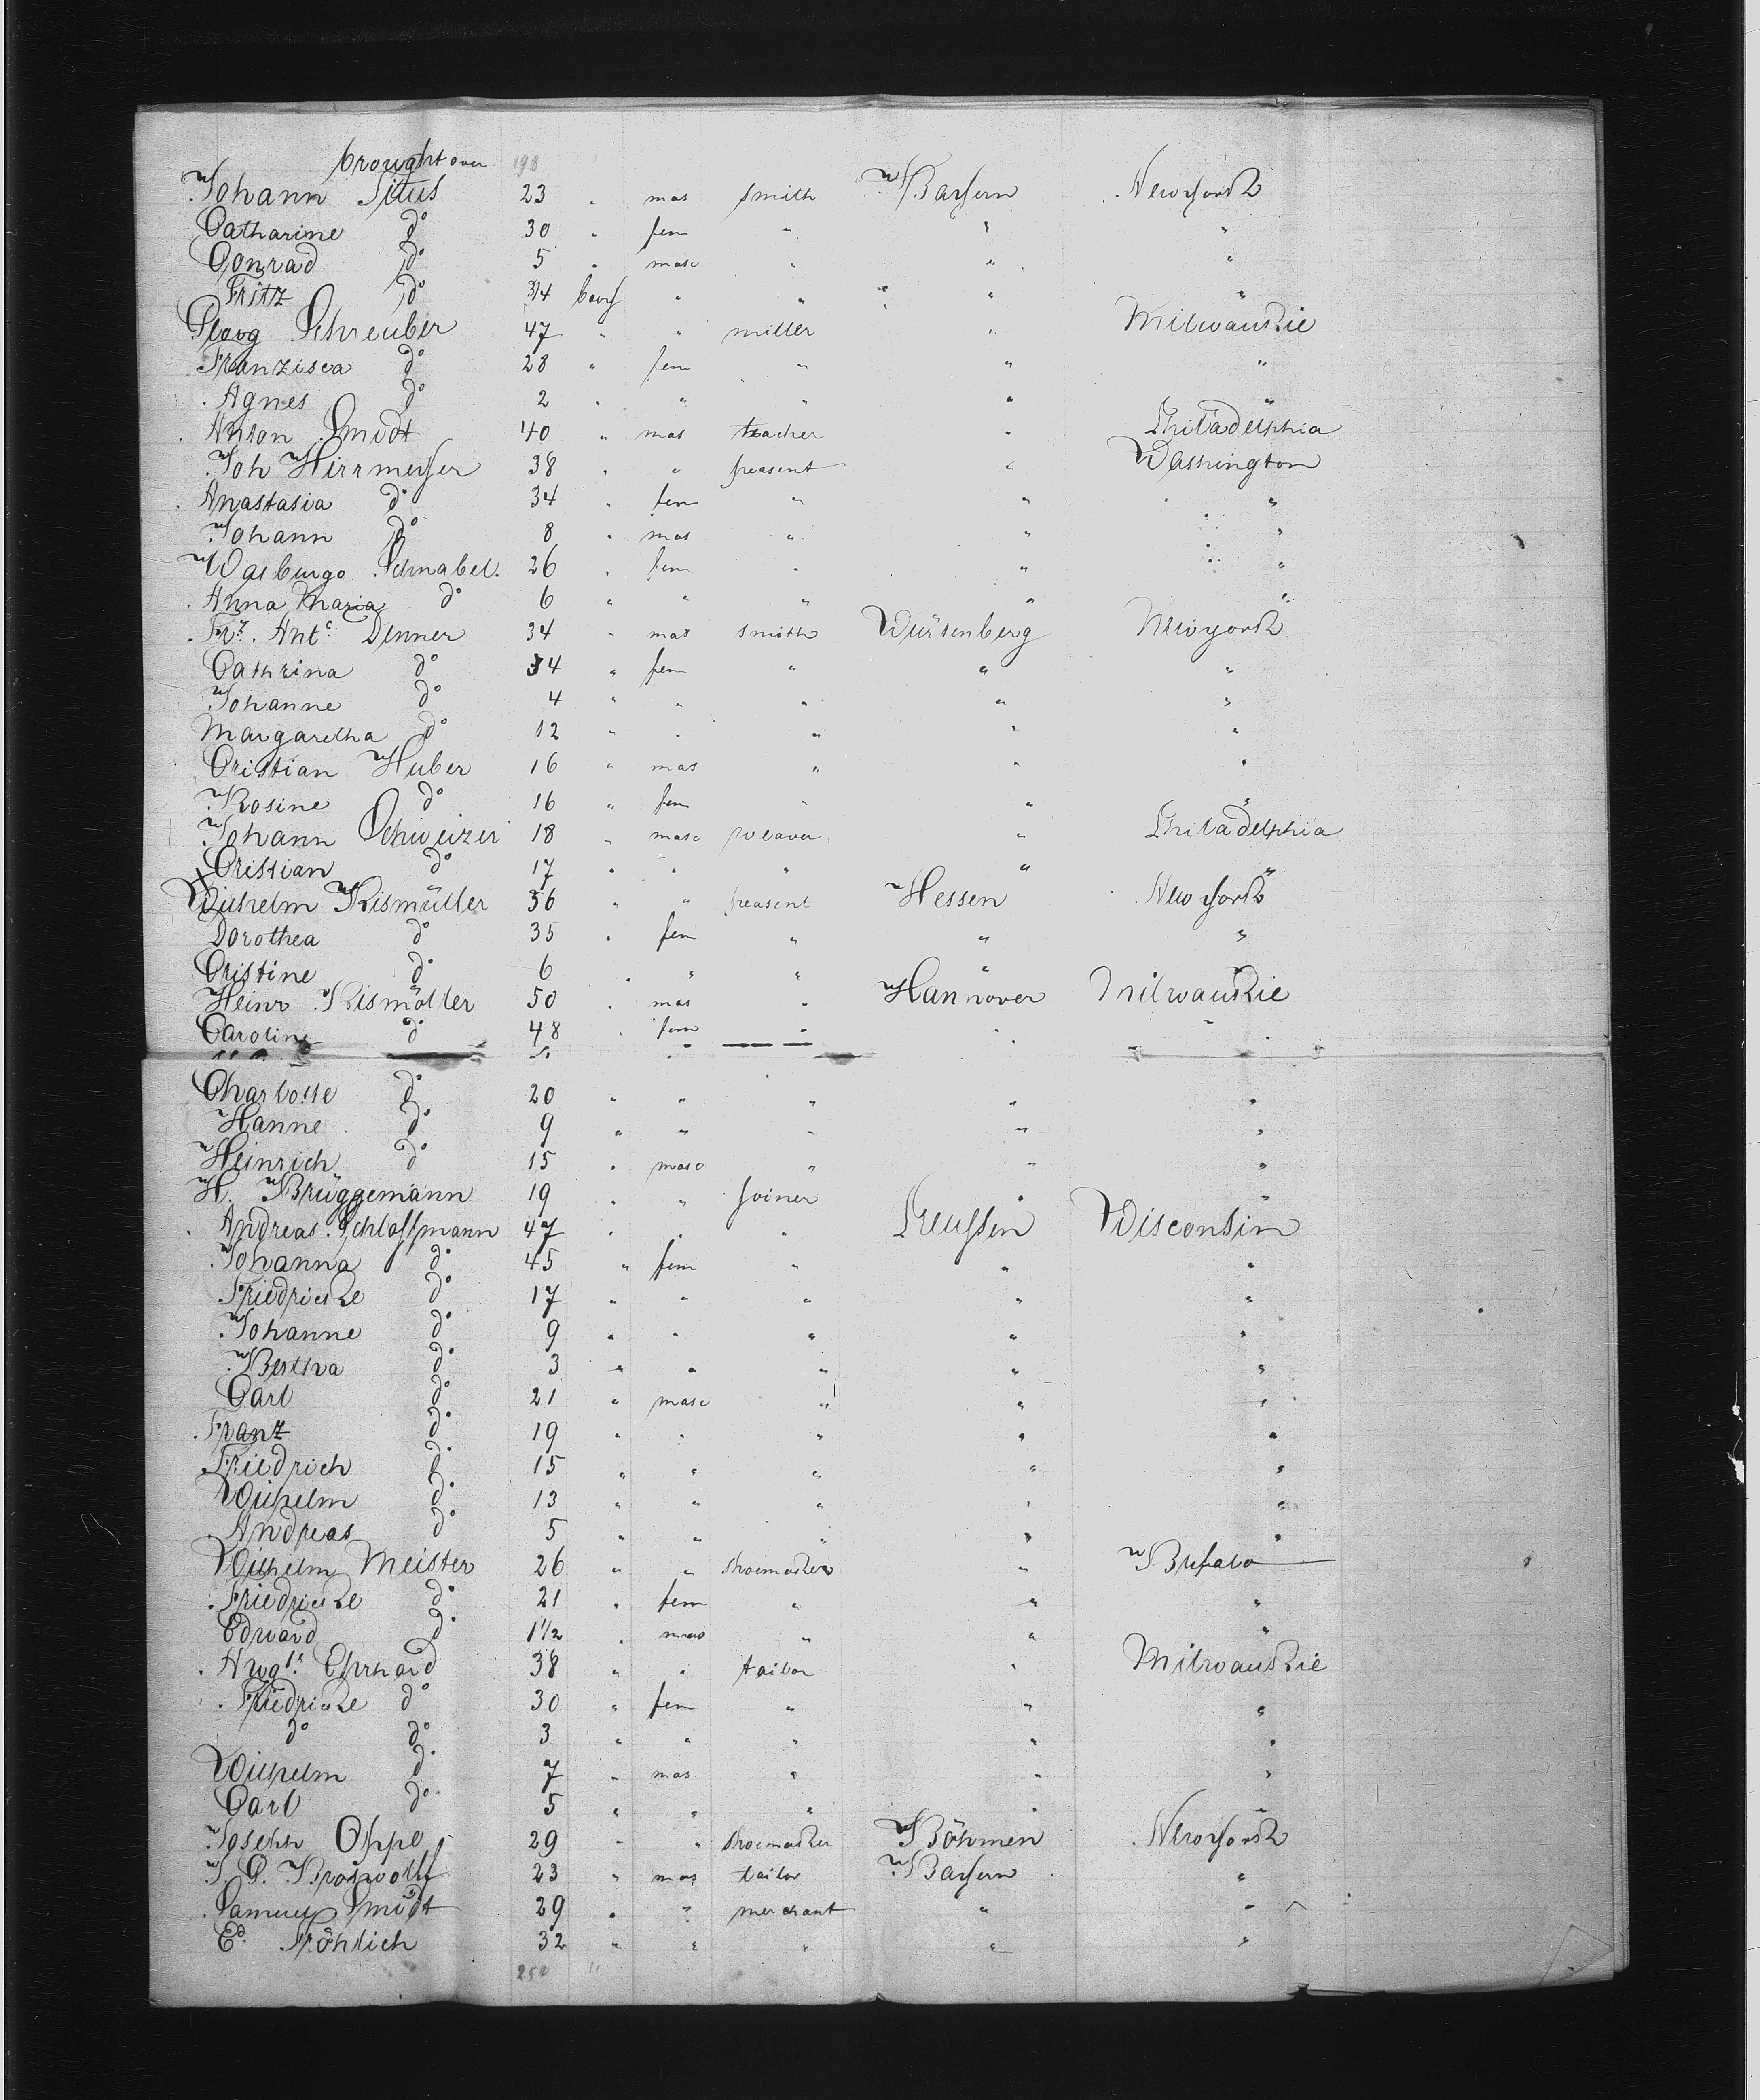 brought over 198
Johann Situs 23 " mas smith Bayern Newyork
Catharine do 30 " fem " " "
Conrad do 5 " masc " " "
Fritz do 3/4 " " " "
Georg Schreuber 47 " " miller " Milwaukie
Franzisca do 28 " fem " " "
Agnes do 2 " " " " "
Anton Smidt 40 " mas teacher " Philadelphia
Joh Hirrmeyer 38 " " peasent " Washington
Anastasia do 34 " fem " " "
Johann do 8 " mas " " "
Walburgo Schnabel. 26 " fem " " "
Anna Maria do 6 " " " " "
Frz. Ant. Denner 34 " mas smith Würtenberg Newyork
Cathrina do 34 " fem " " "
Johanne do 4 " " " " "
Margaretha do 12 " " " " "
Cristian Huber 16 " mas " " "
Rosine do 16 " fem " " "
Johann Schweizer 18 " masc weaver " Philadelphia
Cristian do 17 " " " " "
Wilhelm Kismüller 36 " " peasent Hessen Newyork
Dorothea do 35 " fem " " "
Cristine do 6 " " " " "
Heinr Kismöller 50 " mas " Hannover Milwaukie
Caroline do 48 " fem " " "
Charlotte do 20 " " " " "
Hanne do 9 " " " " "
Heinrich do 15 " masc " " "
H. Brüggemann 19 " " joiner " "
Andreas Schlossmann 47 " " " Preussen Wisconsin
Johanna do 45 " fem " " "
Friedricke do 17 " " " " "
Johanne do 9 " " " " "
Bertha do 3 " " " " "
Carl do 21 " masc " " "
Franz do 19 " " " " "
Friedrich do 15 " " " " "
Wilhelm do 13 " " " " "
Andreas do 5 " " " " "
Wilhelm Meister 26 " " shoemaker " Bufalo
Friedricke do 21 " fem " " "
Edward do 1 1/2 " mas " " "
Augt. Ehrhard 38 " " tailor " Milwaukie
Friedricke do 30 " fem " " "
do do 3 " " " " "
Wilhelm do 7 " mas " " "
Carl do 5 " " " " "
Joseph Oppel 29 " " shoemaker Böhmen Newyork
J. C. 23 " mas tailor Bayern "
Samuel Smidt 29 " " merchant " "
Ed. Fröhlich 32 " " " " "
250 "